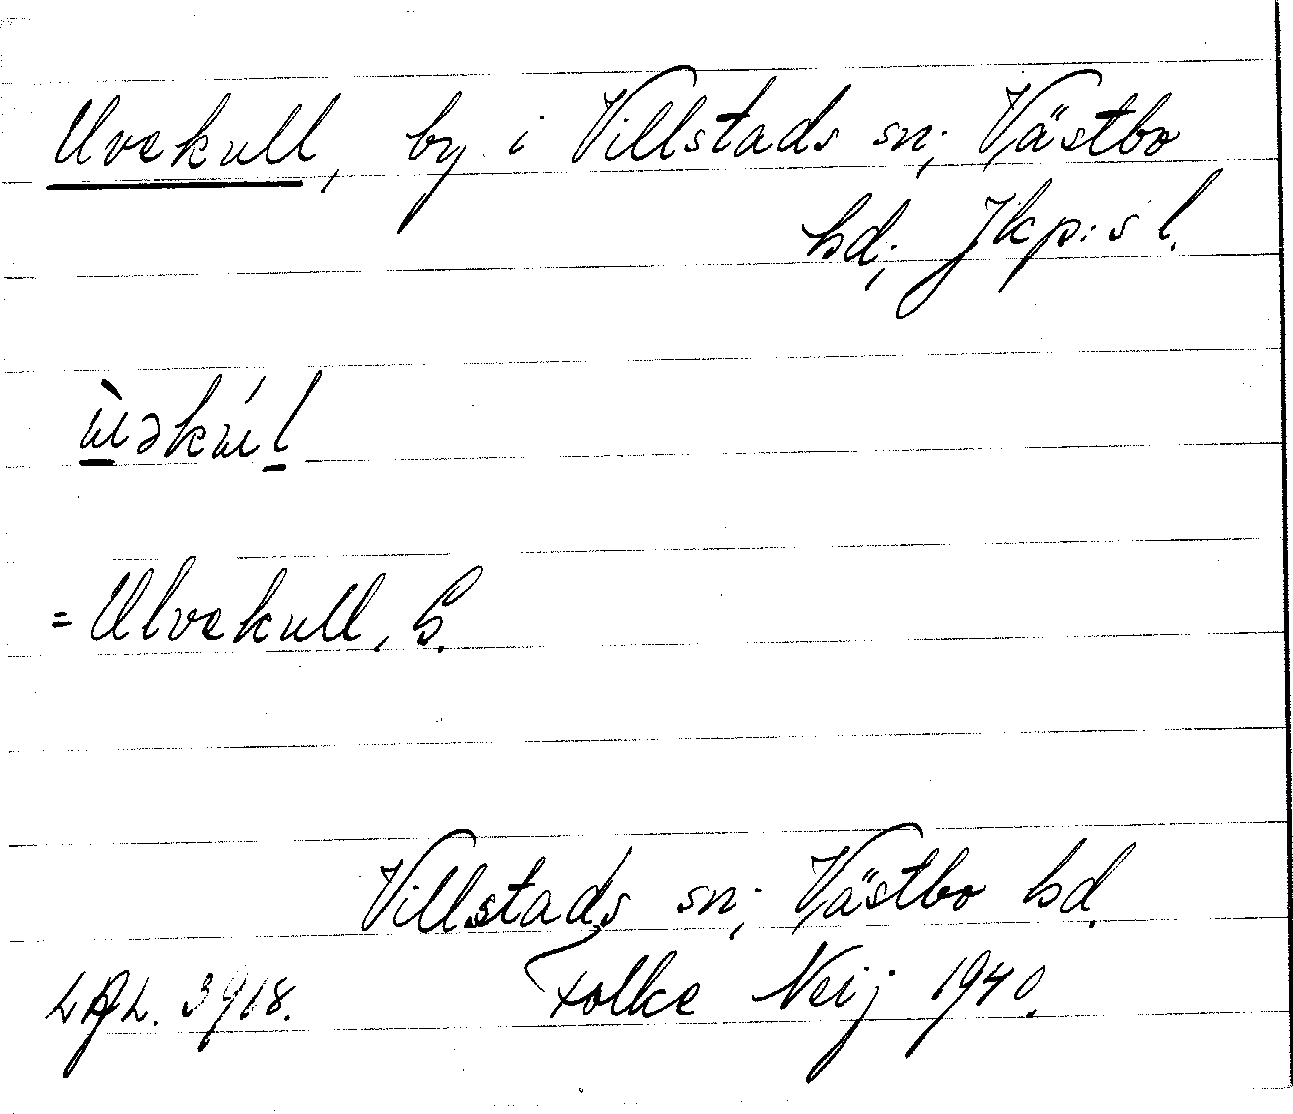 Uvekull, by i Villstads sn; Västbo
hd; Jkp:s l.
ùəkúl
= Ulvekull, S.
Villstads sn; Västbo hd.
Folke Neij 1940.
3918.